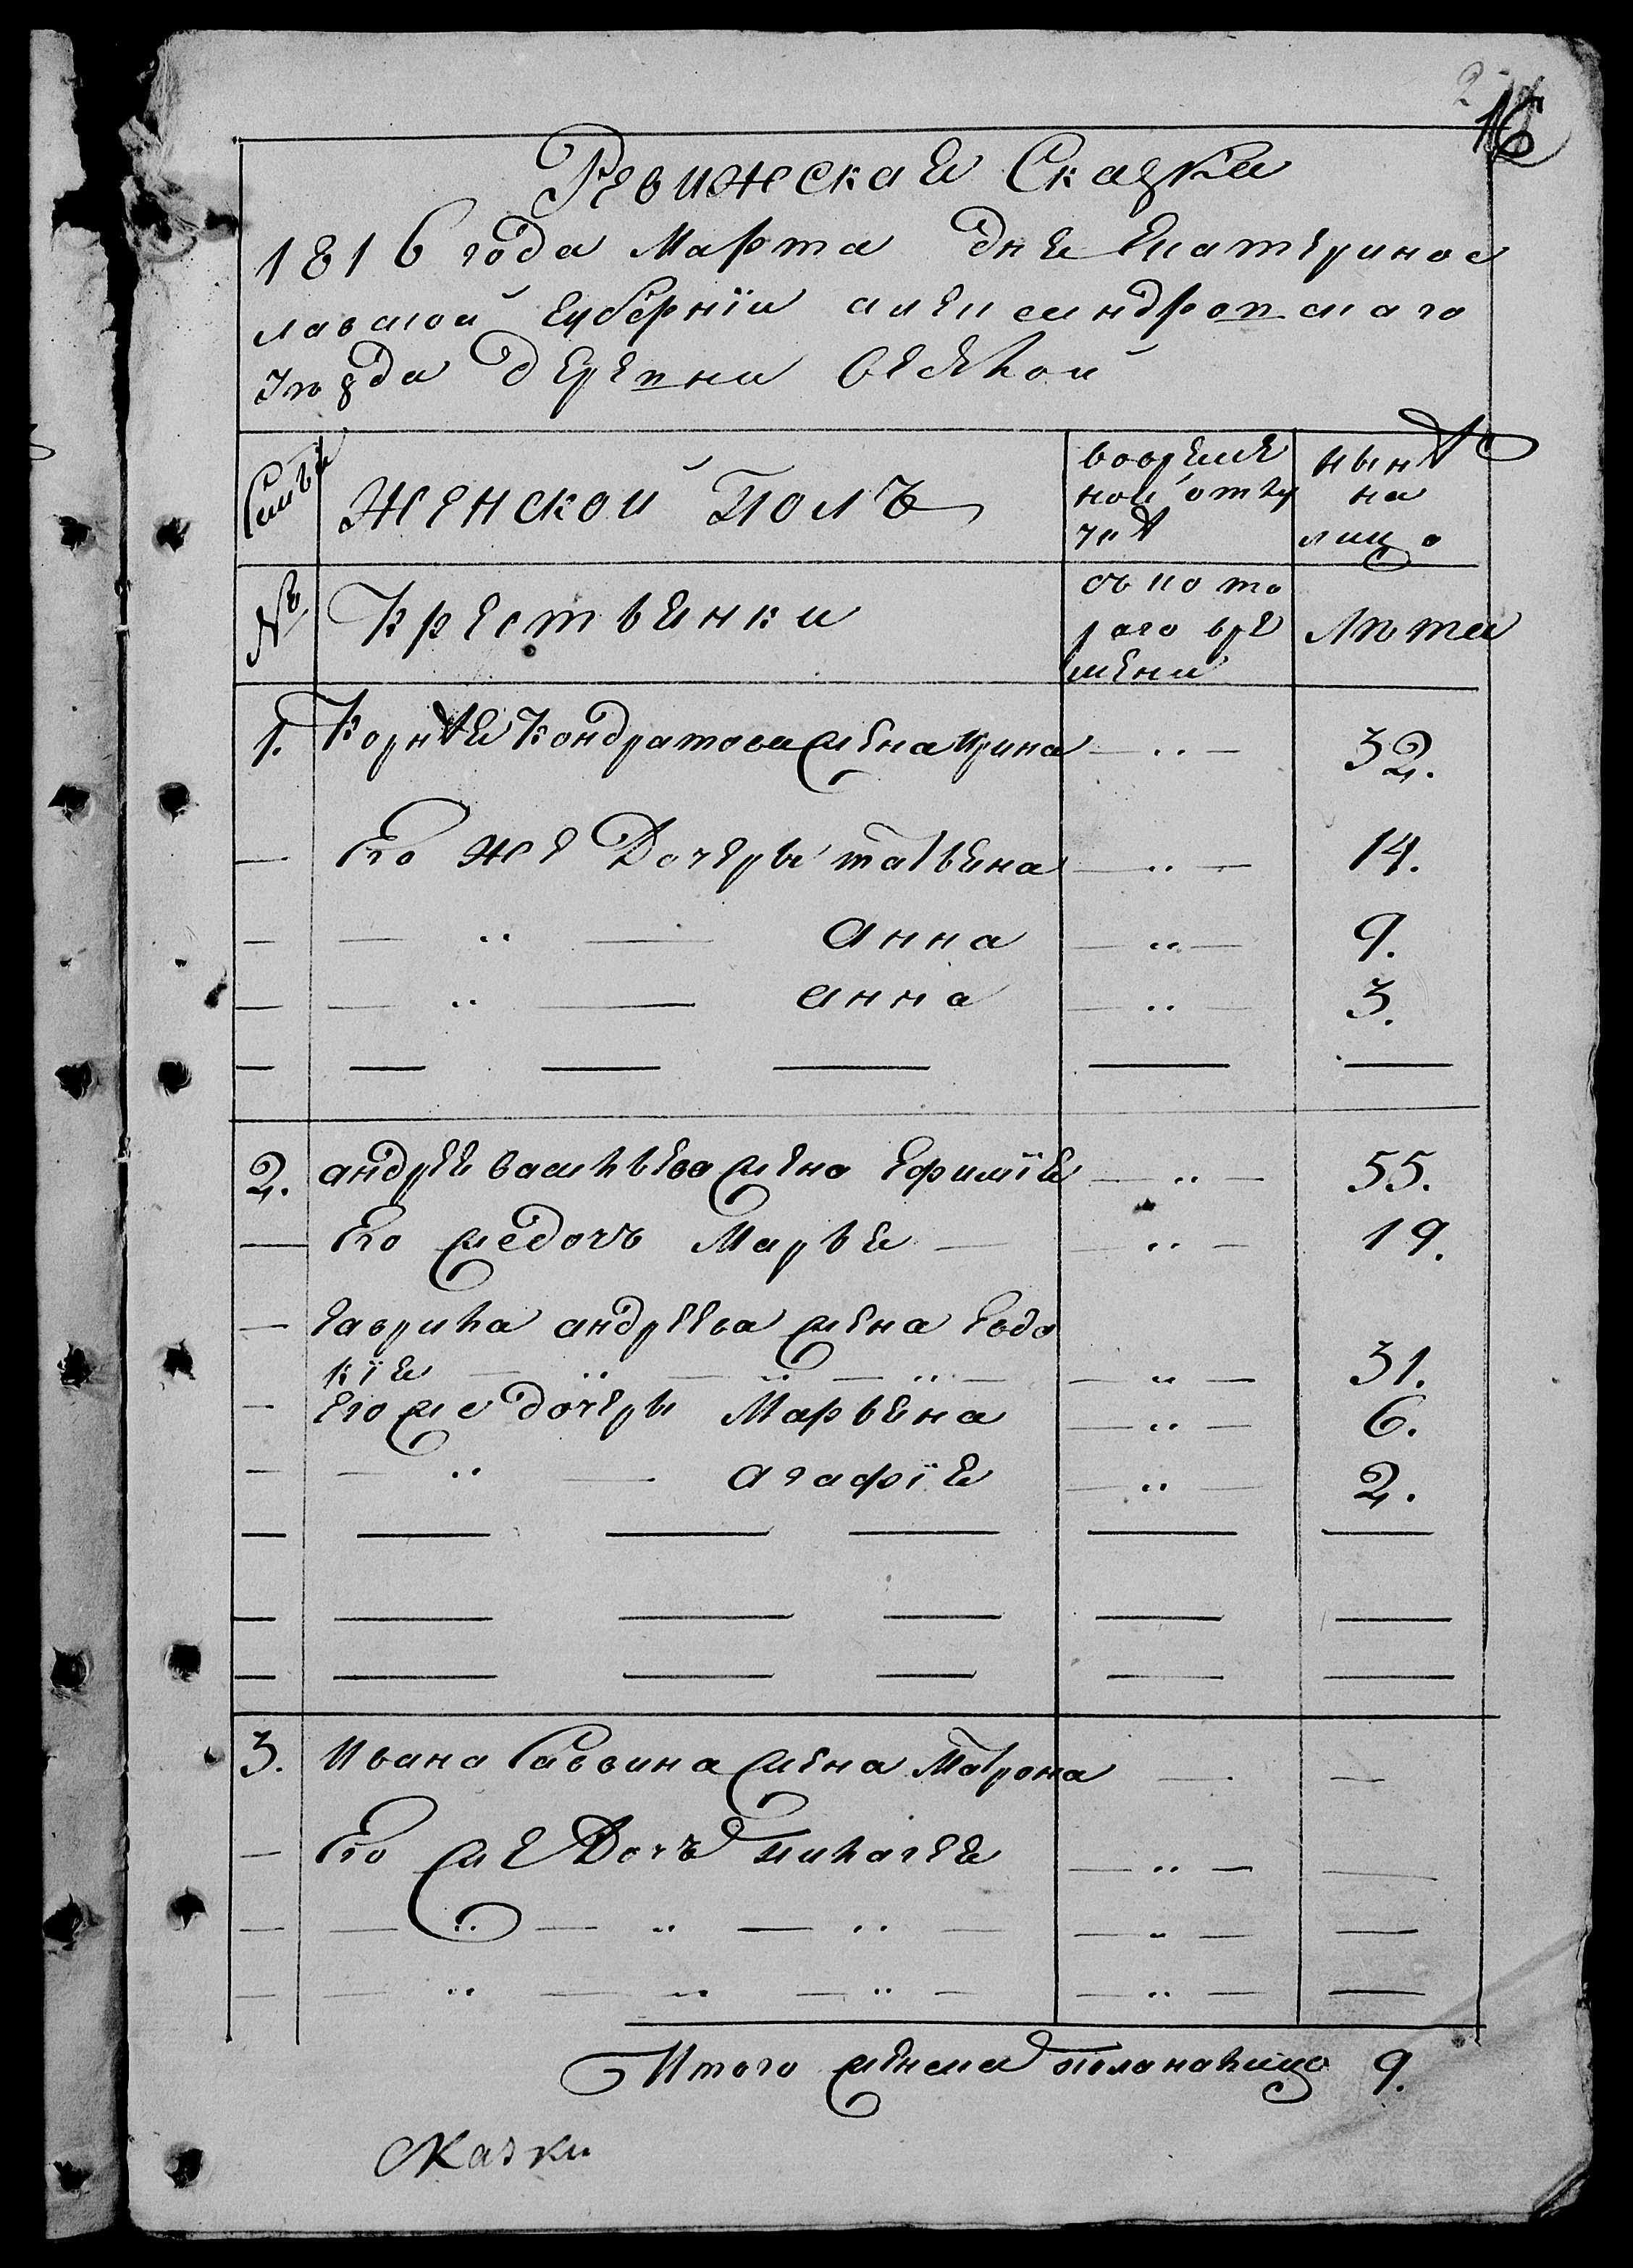 16
Ревижская Сказка
1816 года Марта дня Екатеринос
лавской губернïи александровскаго
уѣзда деревни
Семьи
Женской Полъ
вовреме
ной отлу
чкѣ
нынѣ
на
лицо
№
Крестьянки
съ кото
раго вре
мени
Лѣта
1. Корнѣя Кондратова жена Ирина — .. — 32.
— Его же Дочеры татьяна — .. — 14.
— — .. — анна — .. — 9.
— — .. — анна — .. — 3.
2. андрея васильева жена ефимïя — .. — 55.
— Его же дочъ Марья — — .. — 19.
— гаврила андреева жена евдо
кïя — .. — .. — .. — — .. — 31.
— его же дочеры Марьяна — .. — 6.
— — .. — агафïя — .. — 2.
3. Ивана Саввина жена Матрона — —
— Его же Дочъ пилагея — .. — —
— — .. — .. — .. — — .. — —
— — .. — .. — .. — — .. — —
Итого женска пола налицо 9.
Сказки